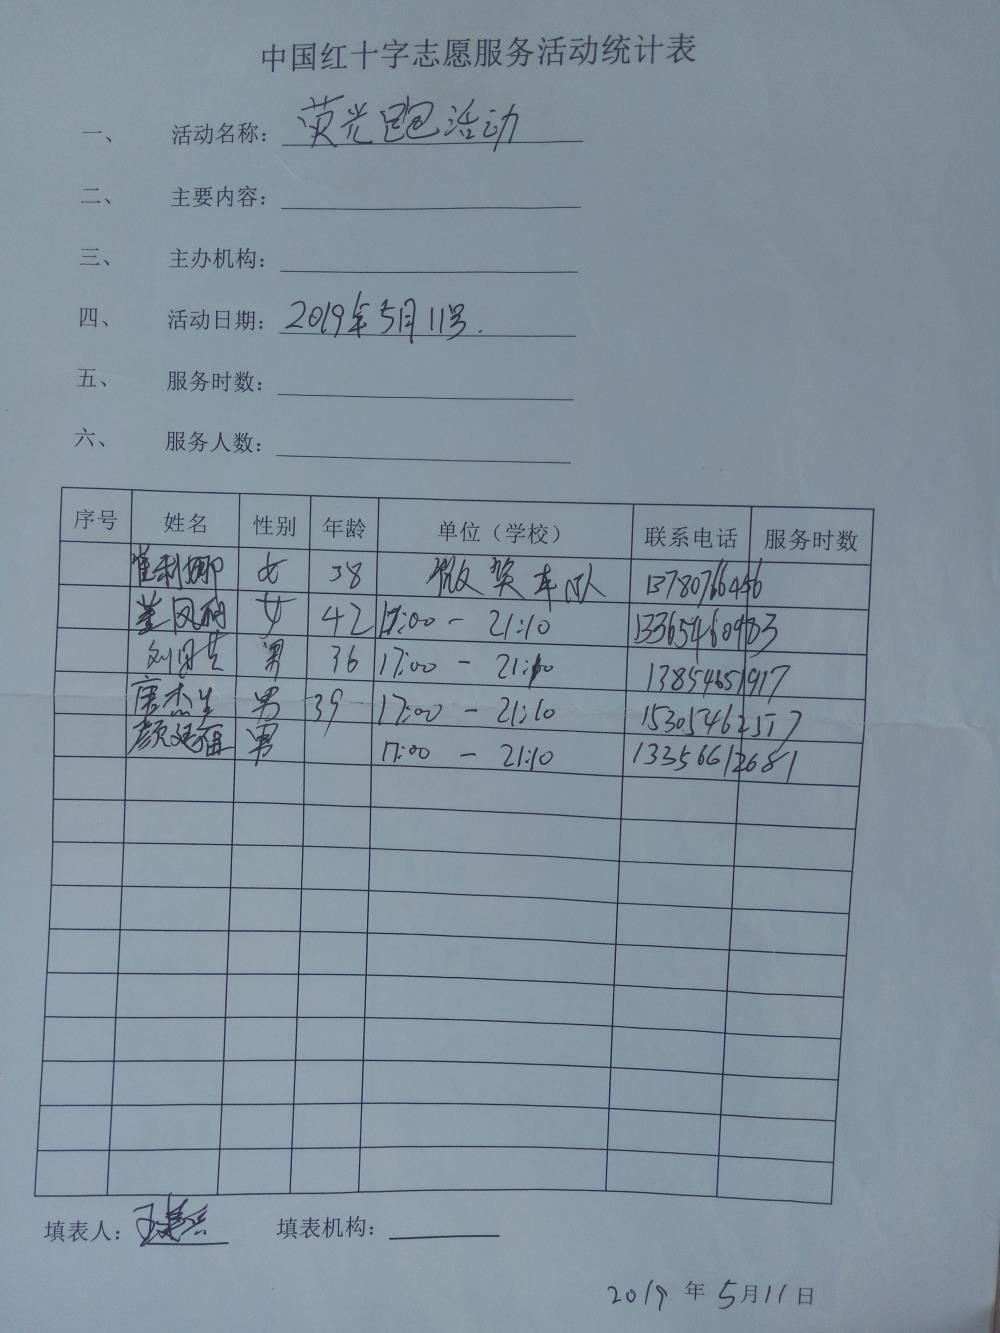 中国红十字志愿服务活动统计表
一、 活动名称：荧光跑活动
二、 主要内容：
三、 主办机构：
四、 活动日期：2019年5月11号.
五、 服务时数：
六、 服务人数：
序号 姓名 性别 年龄 单位（学校） 联系电话 服务时数
女 38 车队
女 42 17:00 - 21:10
男 36 17:00 - 21:10 13854651917
唐杰生 男 39 17:00 - 21:10 15305462517
男 17:00 - 21:10 13356612681
填表人： 填表机构：
2019 年 5月11日